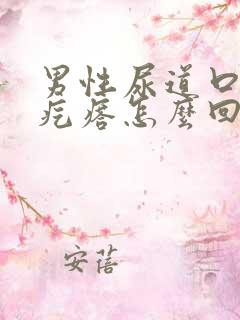 男性尿道口
疙瘩怎麼回
安蓓